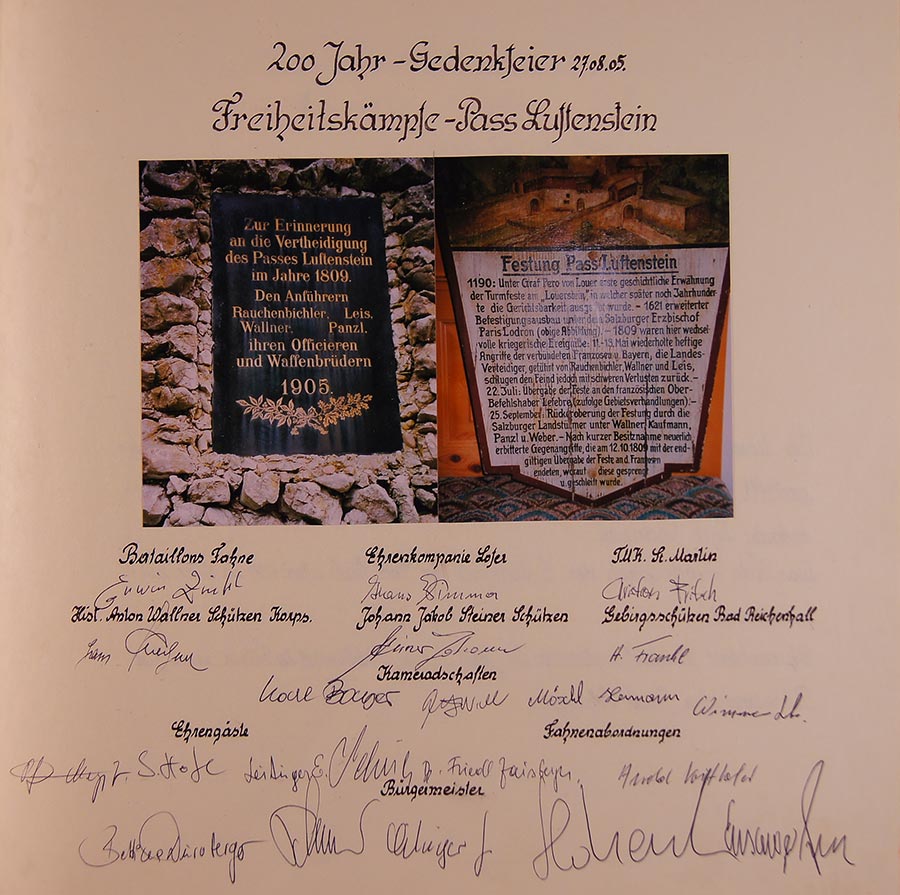 200 Jahr - Gedenkfeier 27.08.05.
Freiheitskämpfe - Pass Luftenstein
Zur Erinnerung
an die Vertheidigung
des Passes Luftenstein
im Jahre 1809.
Den Anführern
Rauchenbichler, Leis,
Wallner, Panzl,
ihren Officieren
und Waffenbrüdern
1905.
Festung Pass/Luftenstein
1190: Unter Graf Pero von Louer erste geschichtliche Erwähnung
der Turmfeste am „Louerstein", in welcher später noch Jahrhunder-
te die Gerichtsbarkeit ausgeübt wurde. - 1621 erweiterter
Befestigungsausbau unter den Salzburger Erzbischof
Paris Lodron (obige Abbildung). - 1809 waren hier wechsel-
volle kriegerische Ereignisse: 11.-13. Mai wiederholte heftige
Angriffe der verbündeten Franzosen u. Bayern, die Landes-
Verteidiger, geführt von Rauchenbichler, Wallner und Leis,
schlugen den Feind jedoch mit schweren Verlusten zurück. -
22. Juli: Übergabe der Feste an den französischen Ober-
Befehlshaber Lefebre (zufolge Gebietsverhandlungen). -
25. September: Rückeroberung der Festung durch die
Salzburger Landstürmer unter Wallner, Kaufmann,
Panzl u. Weber. - Nach kurzer Besitznahme neuerlich
erbitterte Gegenangriffe, die am 12.10.1809 mit der end-
giltigen Übergabe der Feste an d. Franzosen
endeten, worauf diese gesprengt
u. geschleift wurde.
Bataillons Fahne Ehrenkompanie Lofer T.U.K. St. Martin
Erwin
Hist. Anton Wallner Schützen Korps. Johann Jakob Steiner Schützen Gebirgsschützen Bad Reichenhall
Hans Steiner Johann H. Frankl
Kameradschaften
Karl Möschl Hermann Wimmer
Ehrengäste Fahnenabordnungen
Leitinger E. Friedl Arnold
Bürgermeister